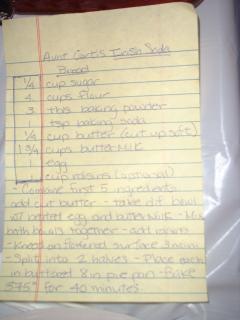 Aunt Cortis Irish Soda
Bread
1/4 cup sugar
4 cups flour
3 tbls baking powder
1 tsp baking soda
1/4 cup butter (cut up soft)
1 3/4 cups butterMilk
1 egg
1 cup raisins (optional)
- Combine first 5 ingredients
add cut butter - take dif bowl
w/ beated egg and butterMilk - Mix
both bowls together - add raisins
- Knead on floured surface 3 min
- Split into 2 halves - Place each
in buttered 8 in pie pan - Bake
375° for 40 minutes.